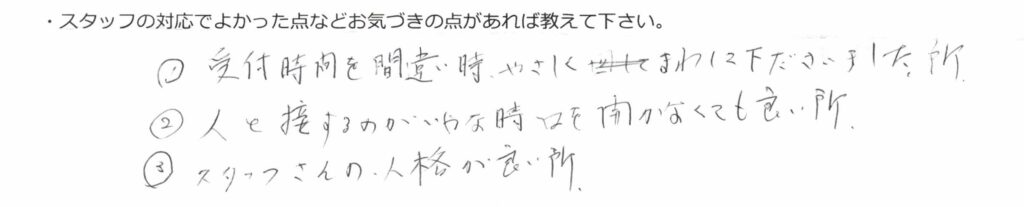 ・スタッフの対応でよかった点などお気づきの点があれば教えて下さい。
① 受付時間を間違い時、やさしくまわして下ださいました。所
② 人と接するのがいやな時口を開かなくても良い所.
③ スタッフさんの、人格が良い所.